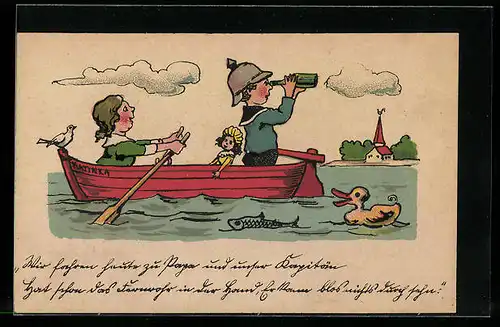 KATINKA
„Wir fahren heute zu Papa und unser Kapitän
Hat schon das Fernrohr in der Hand, Er kann blos nichts durch sehn."